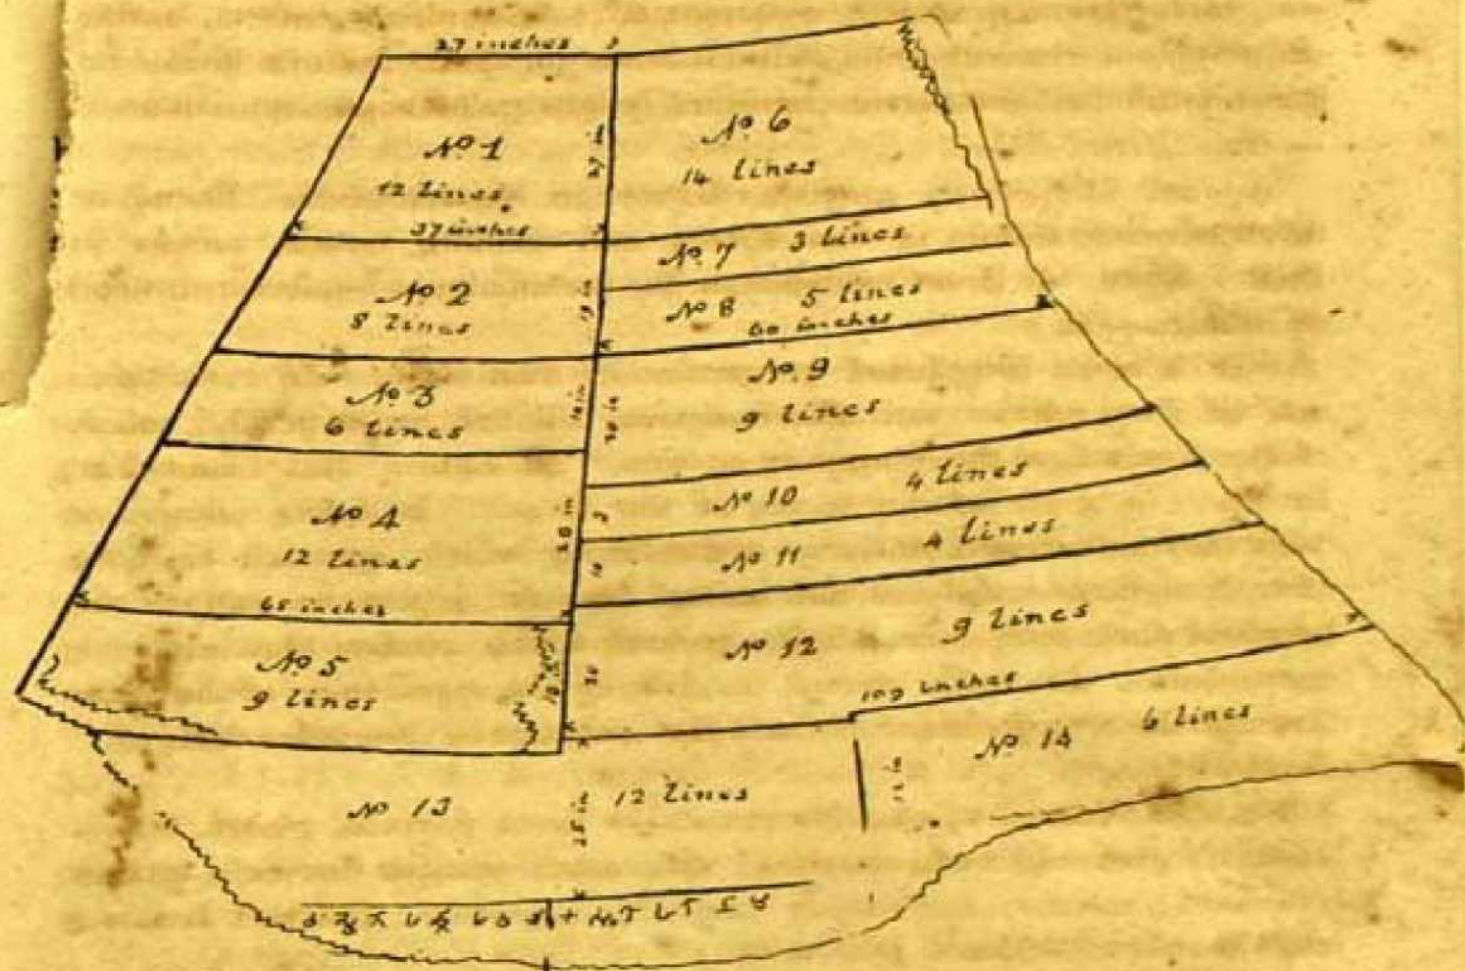 27 inches
No 1
12 lines
37 inches
27 in
No 2
8 lines
No 3
6 lines
No 4
12 lines
65 inches
No 5
9 lines
No 6
14 lines
No 7 3 lines
No 8 5 lines
60 inches
No. 9
9 lines
20 in
No 10 4 lines
No 11 4 lines
10
No 12 9 lines
20
109 inches
No 13 12 lines
25 in
No 14 6 lines